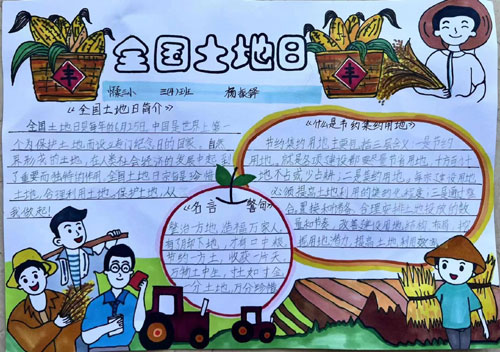 全国土地日
丰
丰
三(4)班
杨振铎
《全国土地日简介》
全国土地日是每年的6月25日,中国是世界上第一
个为保护土地而设立专门纪念日的国家,自然
界物类的土地,在人类社会经济的发展中起到
了重要而独特的作用,全国土地日宗旨是珍惜
土地,合理利用土地,保护土地,从
我做起!
《什么是节约集约用地》
节约集约用地主要包括三层含义:一是节约
用地,就是各项建设都要尽量节省用地,千方百计
地不占或少占耕;二是集约用地,每宗建设用地
必须提高土地利用的集约化程度;三是通过整
合、置换和储备,合理安排土地投放的数
量和节奏,改善建设用地结构、布局,挖
掘用地潜力,提高土地利用效率
《名言警句》
整治一方地,造福万家人,
有了狠下地,才有口中粮
节约一方土,收获一片天,
万物土中生,社如寸金
一分土地,万分珍惜